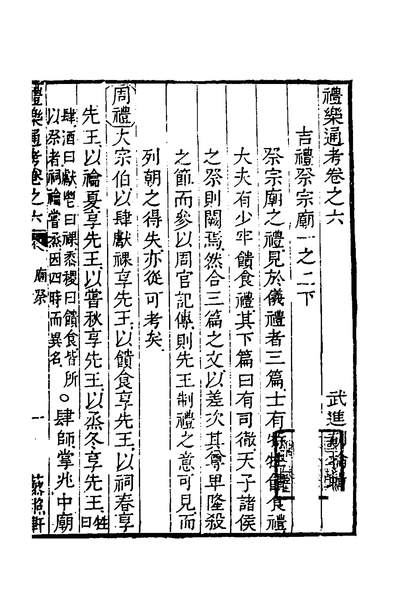 禮樂通考卷之六
武進
吉禮祭宗廟一之二下
祭宗廟之禮見於儀禮者三篇士有特牲饋食禮
大夫有少牢饋食禮其下篇曰有司徹天子諸侯
之祭則闕焉然合三篇之文以差次其尊卑隆殺
之節而參以周官記傳則先王制禮之意可見而
列朝之得失亦從可考矣
周禮大宗伯以肆獻祼享先王以饋食享先王以祠春享
先王以禴夏享先王以嘗秋享先王以烝冬享先王牲曰
肆酒曰獻鬯曰祼黍稷曰饋食皆所
以祭者祠禴嘗烝因四時而異名○肆師掌兆中廟
禮樂通考卷之六 廟祭 一